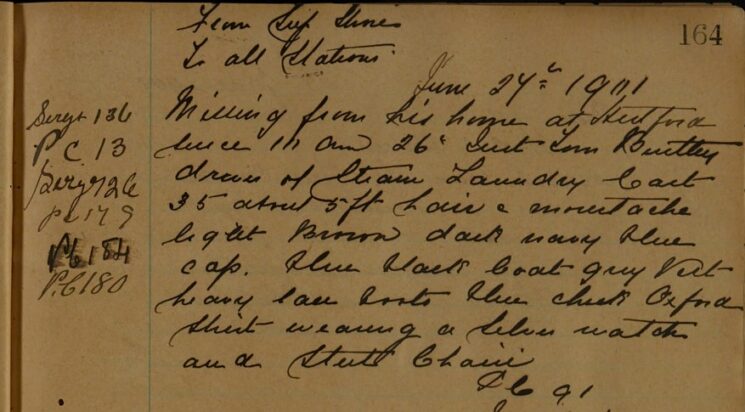 164
From Supt
To all Stations
June 27th 1911
Sergt 136
P C. 13
Sergt 26
PC 179
PC 184
P.C 180
Missing from his home at
since 11 am 26th Inst Tom Bentley
driver of Steam Laundry Cart
35 about 5ft hair & moustache
light Brown dark navy blue
cap. blue black Coat grey Vest
heavy lace boots blue check Oxford
Shirt wearing a Silver watch
and Steel Chain
P C 91